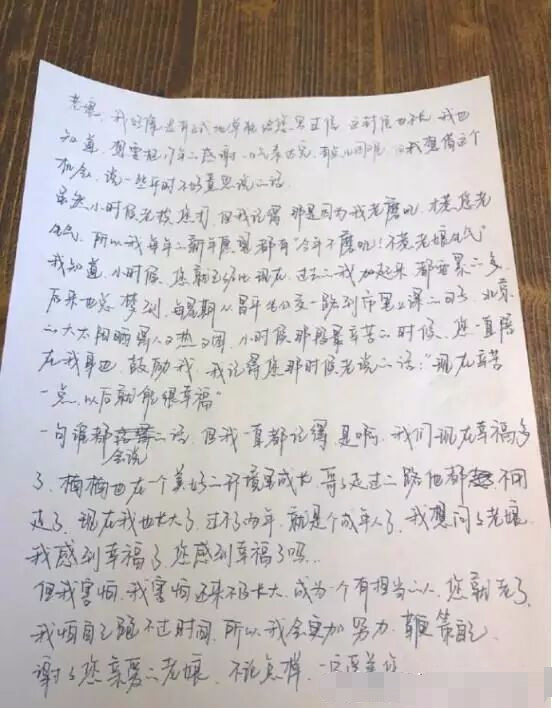 老娘，我好像还有没正式地单独给您写过信，这封信也长，我也
知道，想要把17年的感谢一口气表达完，都点困难，但我想借这个
机会，说一些平时不好意思说的话。
虽然小时候老挨您打，但我记得那是因为我老磨叽，才惹您老
生气，所以我每年的新年愿望都有“今年不磨叽！不惹老娘生气”
我知道，小时候，您就已经比现在、过去的我加起来都要累的多，
后来也总梦到，每星期从昌平坐公交一路到市里上课的日子，北京
的大太阳晒得人又热又困，小时候那段最辛苦的时候，您一直陪
在我身边，鼓励我，我记得您那时候老说的话：“现在辛苦
一点，以后就能很幸福”
一句谁都会说的话，但我一直都记得，是啊，我们现在幸福多
了，楠楠也在一个美好的环境里成长，哥哥走过的路他都不用
走了，现在我也长大了，过不了两年，就是个成年人了，我想问问老娘
我感到幸福了，您感到幸福了吗...
但我害怕，我害怕还来不及长大，成为一个有担当的人，您就老了，
我怕自己跑不过时间，所以我会更加努力，鞭策自己
谢谢您亲爱的老娘，不论怎样，一定要